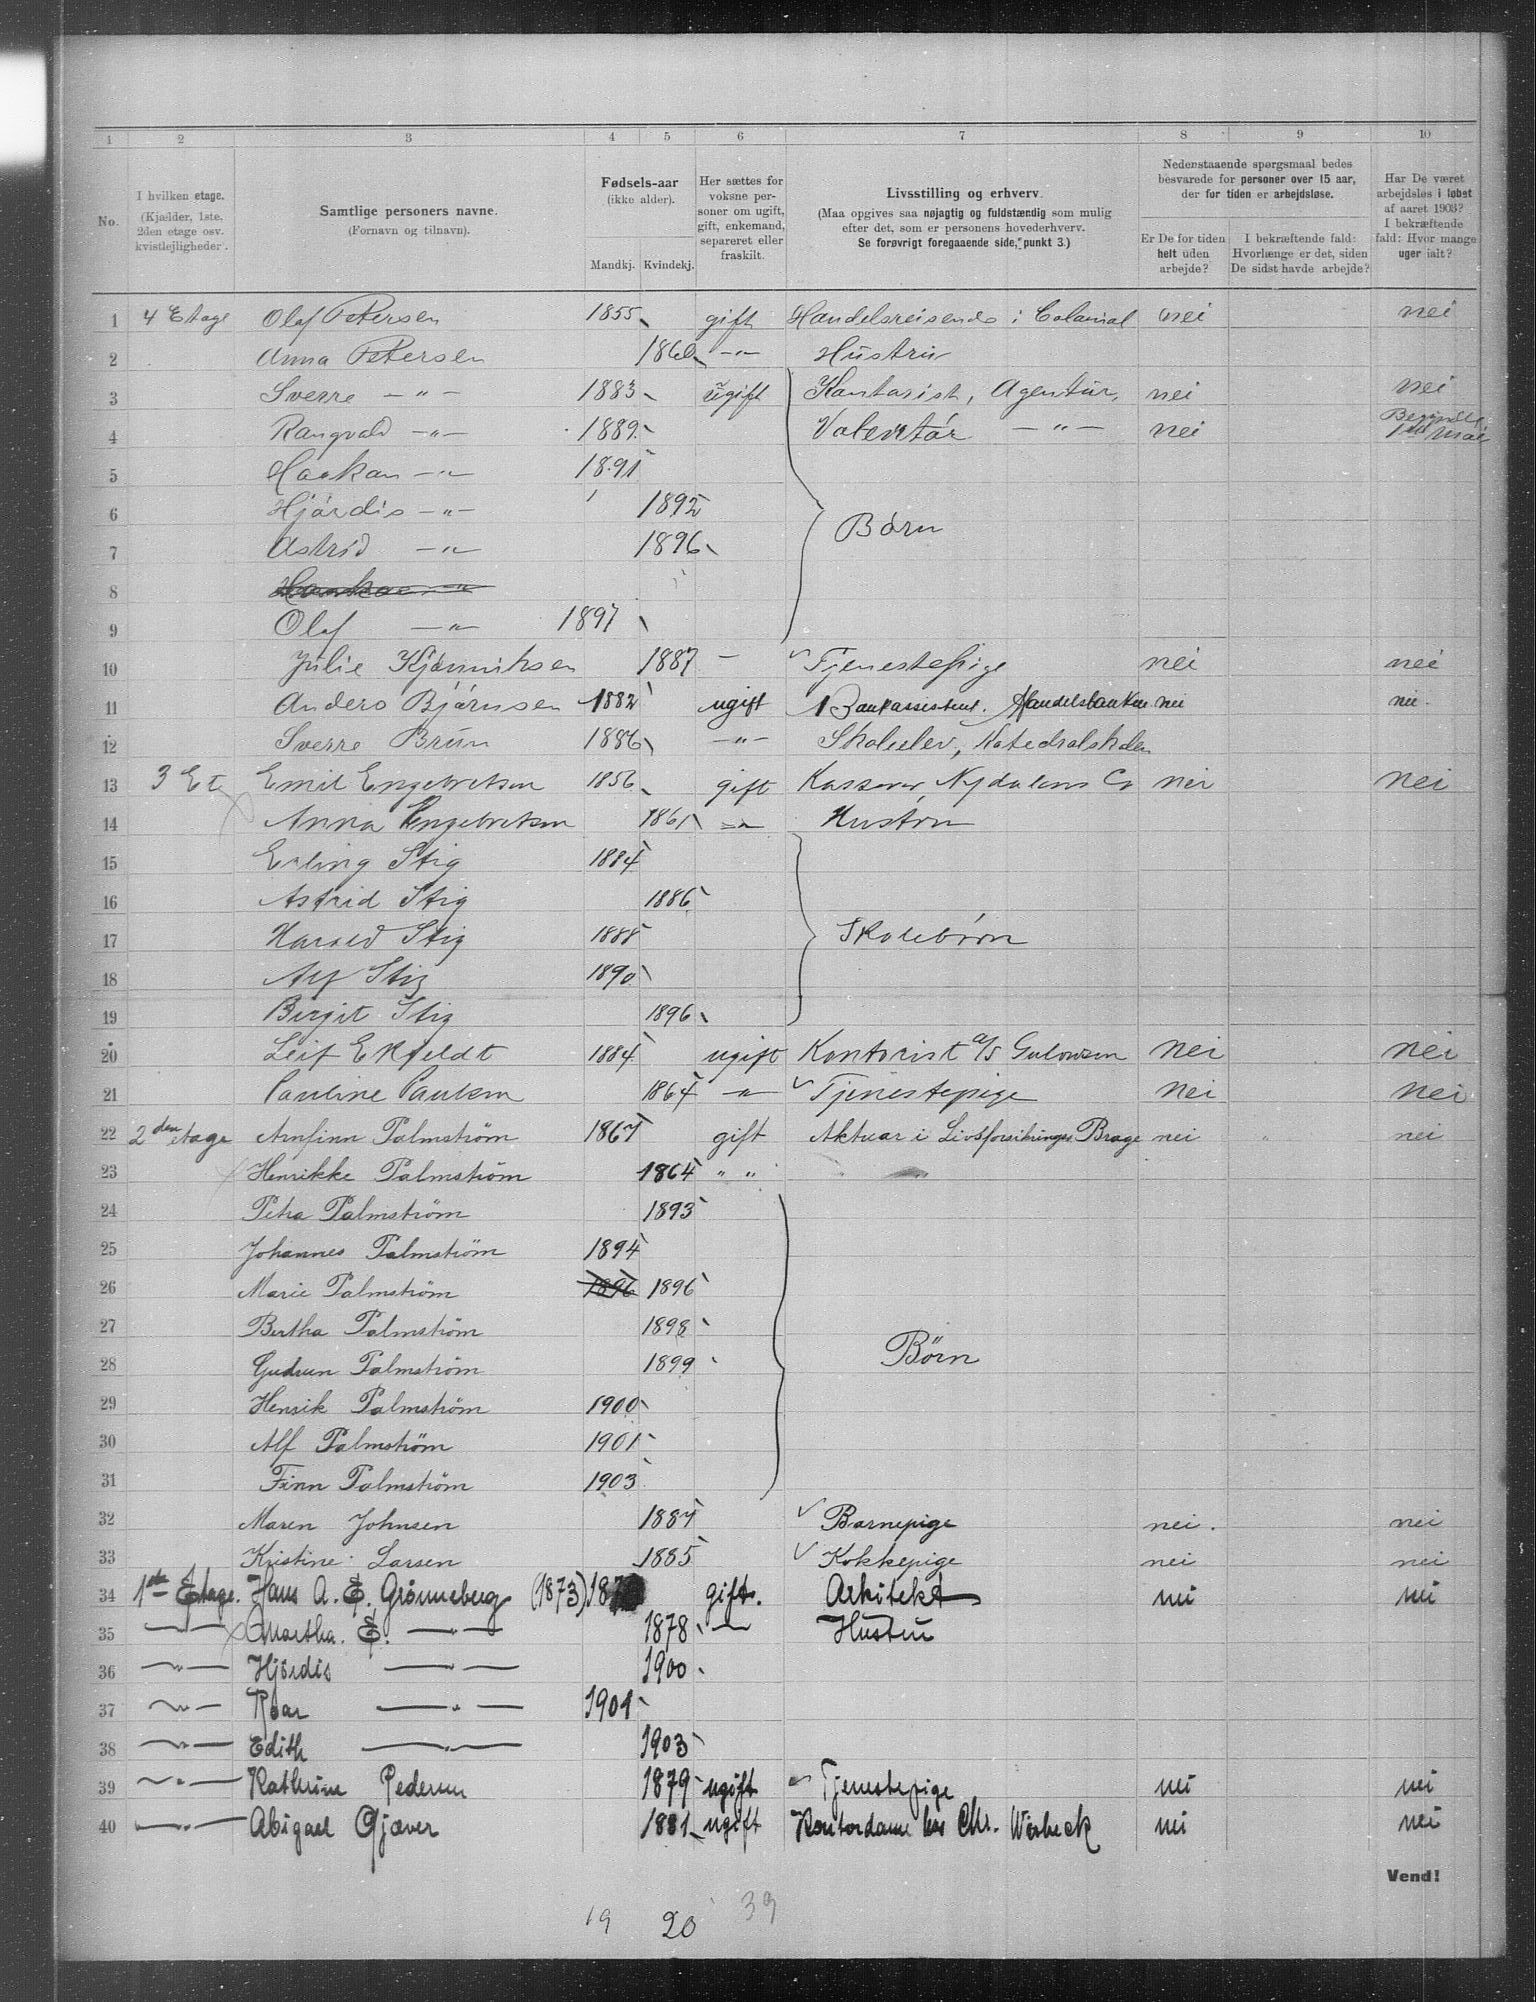 1 2 3 4 5 6 7 8 9 10
No.
I hvilken etage.
(Kjælder, 1ste.
2den etage osv.
kvistlejligheder.
Samtlige personers navne.
(Fornavn og tilnavn).
Fødsels-aar
(ikke alder).
Mandkj. Kvindekj.
Her sættes for
voksne per-
soner om ugift,
gift, enkemand,
separeret eller
fraskilt.
Livsstilling og erhverv.
(Maa opgives saa nøjagtig og fuldstændig som mulig
efter det, som er personens hovederhverv.
Se forøvrigt foregaaende side, punkt 3.)
Nedenstaaende spørgsmaal bedes
besvarede for personer over 15 aar,
der for tiden er arbejdsløse.
Er De for tiden
helt uden
arbejde?
I bekræftende fald:
Hvorlænge er det, siden
De sidst havde arbejde?
Har De været
arbejdsløs i løbet
af aaret 1903?
I bekræftende
fald: Hvor mange
uger ialt?
1 4 Etage Olaf Petersen 1855 gift Handelsreisende i Colonial nei nei
2 Anna Petersen 1860 -"- Hustru
3 Sverre -"- 1883 ugift Kontorist, Agentur, nei nei
4 Rangvald -"- 1889 Volentør -"- nei Begyndte 1ste Mai
5 Haakon -"- 1891
6 Hjördis -"- 1892
7 Astrid -"- 1896 Börn
8 Haakon -"-
9 Olaf -"- 1897
10 Julie 1887 - Tjenestepige nei nei
11 Anders Bjørnsen 1882 ugift Bankassistent. Handelsbanken nei nei.
12 Sverre Brun 1886 -"- Skoleelev, Katedralskolen
13 3 Et Emil Engebretsen 1856 gift Kasserer Nydalens Co nei nei
14 Anna Engebretsen 1861 -"- Hustru
15 Erling Stig 1884
16 Astrid Stig 1886
17 Harald Stig 1888 Skolebörn
18 Alf Stig 1890
19 Birgit Stig 1896
20 Leif Ekfeldt 1884 ugift Kontorist a/s Gulowsen nei nei
21 Pauline Paulsen 1864 -"- Tjenestepige nei nei
22 2den etage Arnfinn Palmström 1867 gift Aktuar i Livsforsikrings Brage nei " nei
23 Henrikke Palmström 1864 " "
24 Petra Palmström 1893
25 Johannes Palmström 1894
26 Marie Palmström 1896 1896
27 Bertha Palmström 1898
28 Gudrun Palmström 1899 Börn
29 Henrik Palmström 1900
30 Alf Palmström 1901
31 Finn Palmström 1903
32 Maren Johnsen 1887 Barnepige nei. nei
33 Kristine Larsen 1885 Kokkepige nei nei
34 1ste Etage. Hans A. E. Grønneberg (1873) gift. Arkitekt nei nei
35 -"- Martha. E. -"- 1878 -"- Hustru
36 -"- Hjördis -"- 1900
37 -"- Roar -"- 1901
38 -"- Edith -"- 1903
39 -"- Kathrine Pedersen 1879 ugift Tjenestepige nei nei
40 -"- Abigael Gjæver 1881 ugift Kontordame hos Chr. Wisbeck nei nei
Vend!
19 20 39